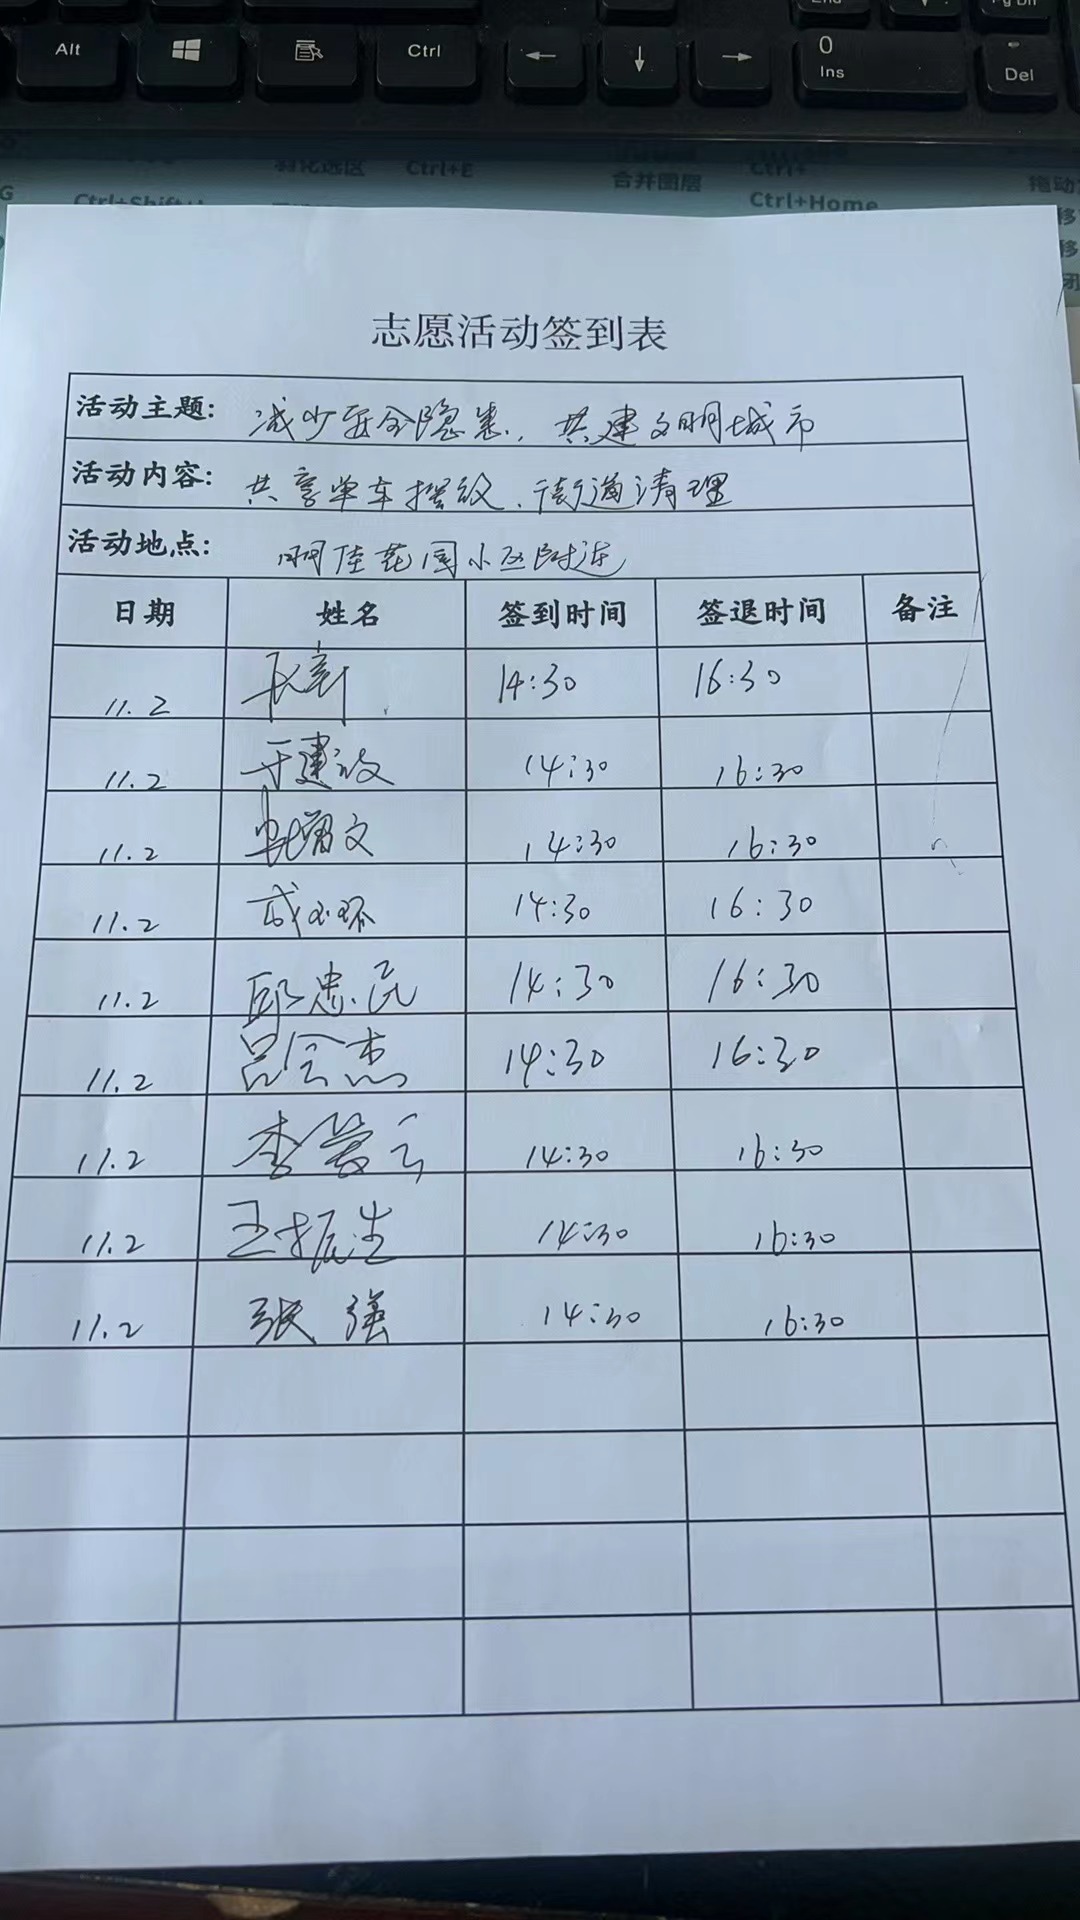 Alt Ctrl ← ↓ → 0 Ins Del
Ctrl+E 合并图层 Ctrl+
Ctrl+Shift+ Ctrl+Home 拖动
志愿活动签到表
活动主题: 减少安全隐患,共建文明城市
活动内容: 共享单车摆放、街道清理
活动地点: 明佳花园小区附近
日期 姓名 签到时间 签退时间 备注
11.2 14:30 16:30
11.2 于建波 14:30 16:30
11.2 14:30 16:30
11.2 14:30 16:30
11.2 邱忠民 14:30 16:30
11.2 吕会杰 14:30 16:30
11.2 李 云 14:30 16:30
11.2 王振生 14:30 16:30
11.2 张强 14:30 16:30